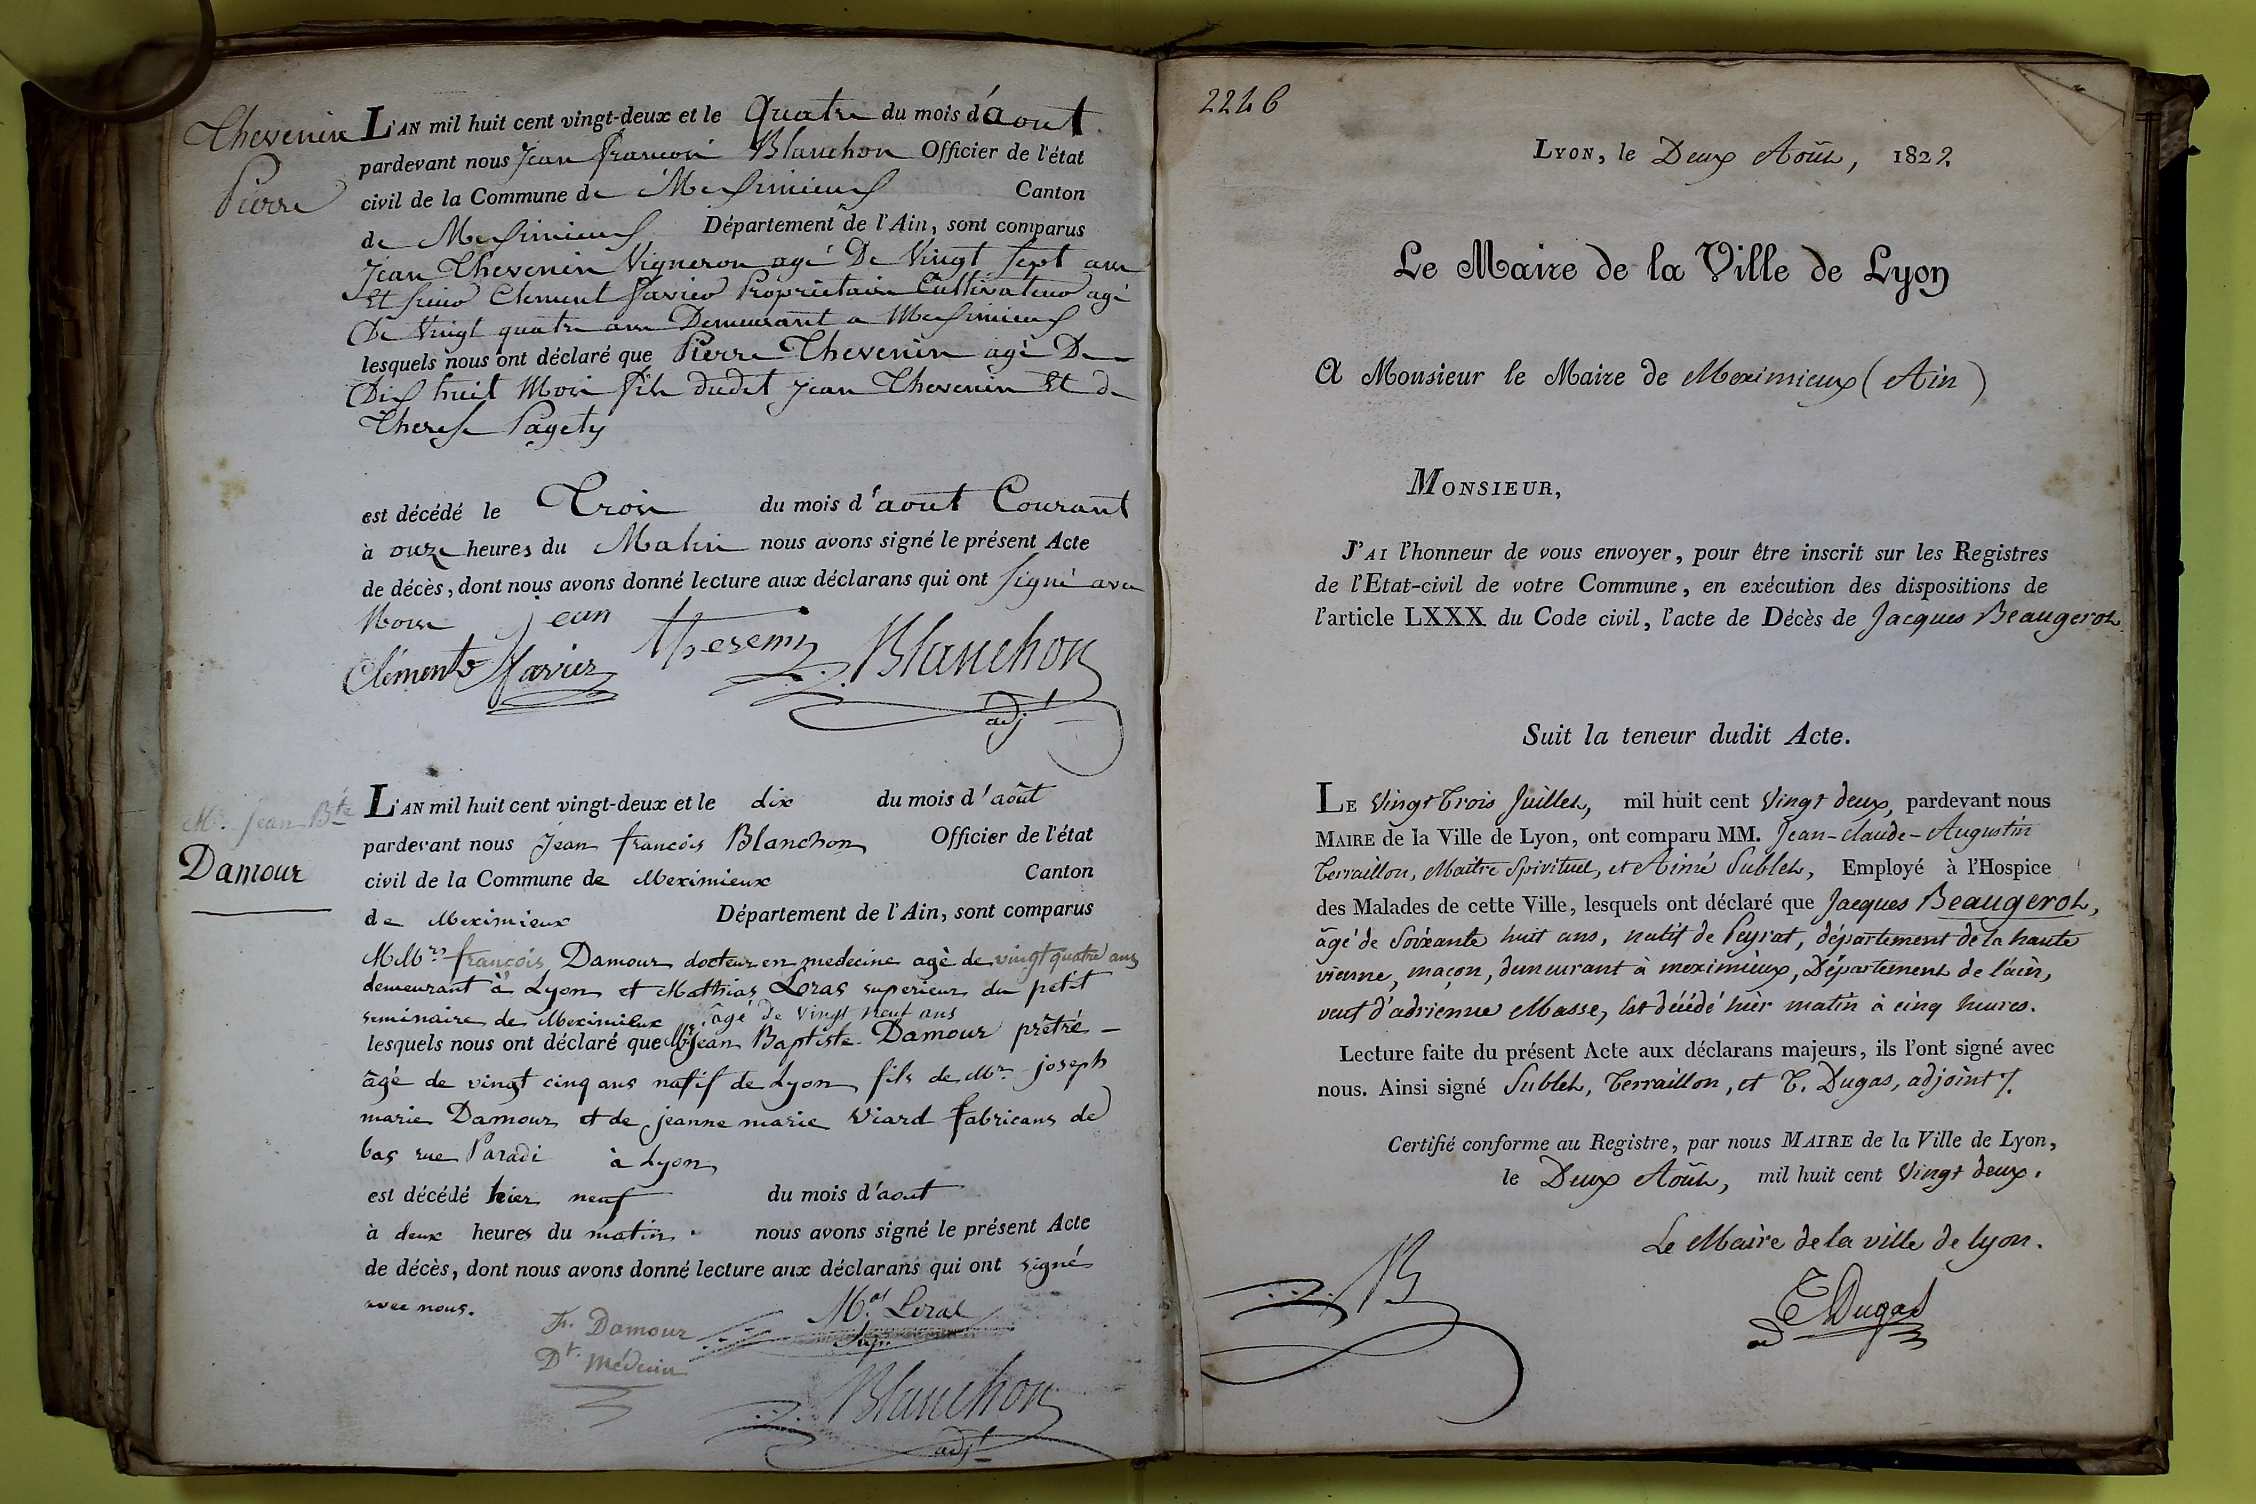 Thevenin
Pierre
L'AN mil huit cent vingt-deux et le Quatre du mois d'aout
pardevant nous Jean francois Blanchon Officier de l'état
civil de la Commune de Messimieux Canton
de Messimieux Département de l'Ain, sont comparus
Jean Thevenin Vigneron agé De Vingt sept ans
Et Clement Proprietaire Cultivateur agé
De Vingt quatre ans Demeurant a Messimieux
lesquels nous ont déclaré que Pierre Thevenin agé De
Dix huit Mois fils dudit Jean Thevenin Et de
Therese Pagety
est décédé le Trois du mois d'aout Courant
à onze heures du Matin nous avons signé le présent Acte
de décès, dont nous avons donné lecture aux déclarans qui ont Signé avec
Nous jean
Clément thevenin Blanchon
adjt
Mr. Jean Bte
Damour
L'AN mil huit cent vingt-deux et le dix du mois d'août
pardevant nous Jean françois Blanchon Officier de l'état
civil de la Commune de Meximieux Canton
de Meximieux Département de l'Ain, sont comparus
MMrs françois Damour docteur en medecine agè de vingt quatre ans
demeurant à Lyon et Mathias Loras superieur du petit
seminaire de Meximieux âgé de vingt neuf ans
lesquels nous ont déclaré que Mr jean Baptiste Damour prêtre
âgé de vingt cinq ans natif de Lyon fils de Mr joseph
marie Damour et de jeanne marie Viard fabricans de
bas rue Paradi à Lyon
est décédé hier neuf du mois d'aout
à deux heures du matin. nous avons signé le présent Acte
de décès, dont nous avons donné lecture aux déclarans qui ont signé
avec nous.
F. Damour Mas Loras
Dr. Médecin Supr
Blanchon
adjt
2246
LYON, le Deux Août, 1822.
Le Maire de la Ville de Lyon
A Monsieur le Maire de Meximieux (Ain)
MONSIEUR,
J'AI l'honneur de vous envoyer, pour être inscrit sur les Registres
de l'Etat-civil de votre Commune, en exécution des dispositions de
l'article LXXX du Code civil, l'acte de Décès de Jacques Beaugerot
Suit la teneur dudit Acte.
LE Vingt Trois Juillet, mil huit cent Vingt deux, pardevant nous
MAIRE de la Ville de Lyon, ont comparu MM. Jean-Claude-Augustin
Terraillon, Maitre Spirituel, et Aimé Sublet, Employé à l'Hospice
des Malades de cette Ville, lesquels ont déclaré que Jacques Beaugerot,
âgé de Soixante huit ans, natif de Peyrat, département de la haute
vienne, maçon, demeurant à meximieux, Département de l'ain,
veuf d'adrienne Masse, est décédé hier matin à cinq heures.
Lecture faite du présent Acte aux déclarans majeurs, ils l'ont signé avec
nous. Ainsi signé Sublet, Terraillon, et T. Dugas, adjoint.
Certifié conforme au Registre, par nous MAIRE de la Ville de Lyon,
le Deux Août, mil huit cent Vingt deux.
Le Maire de la ville de lyon.
T Dugas
ad
B